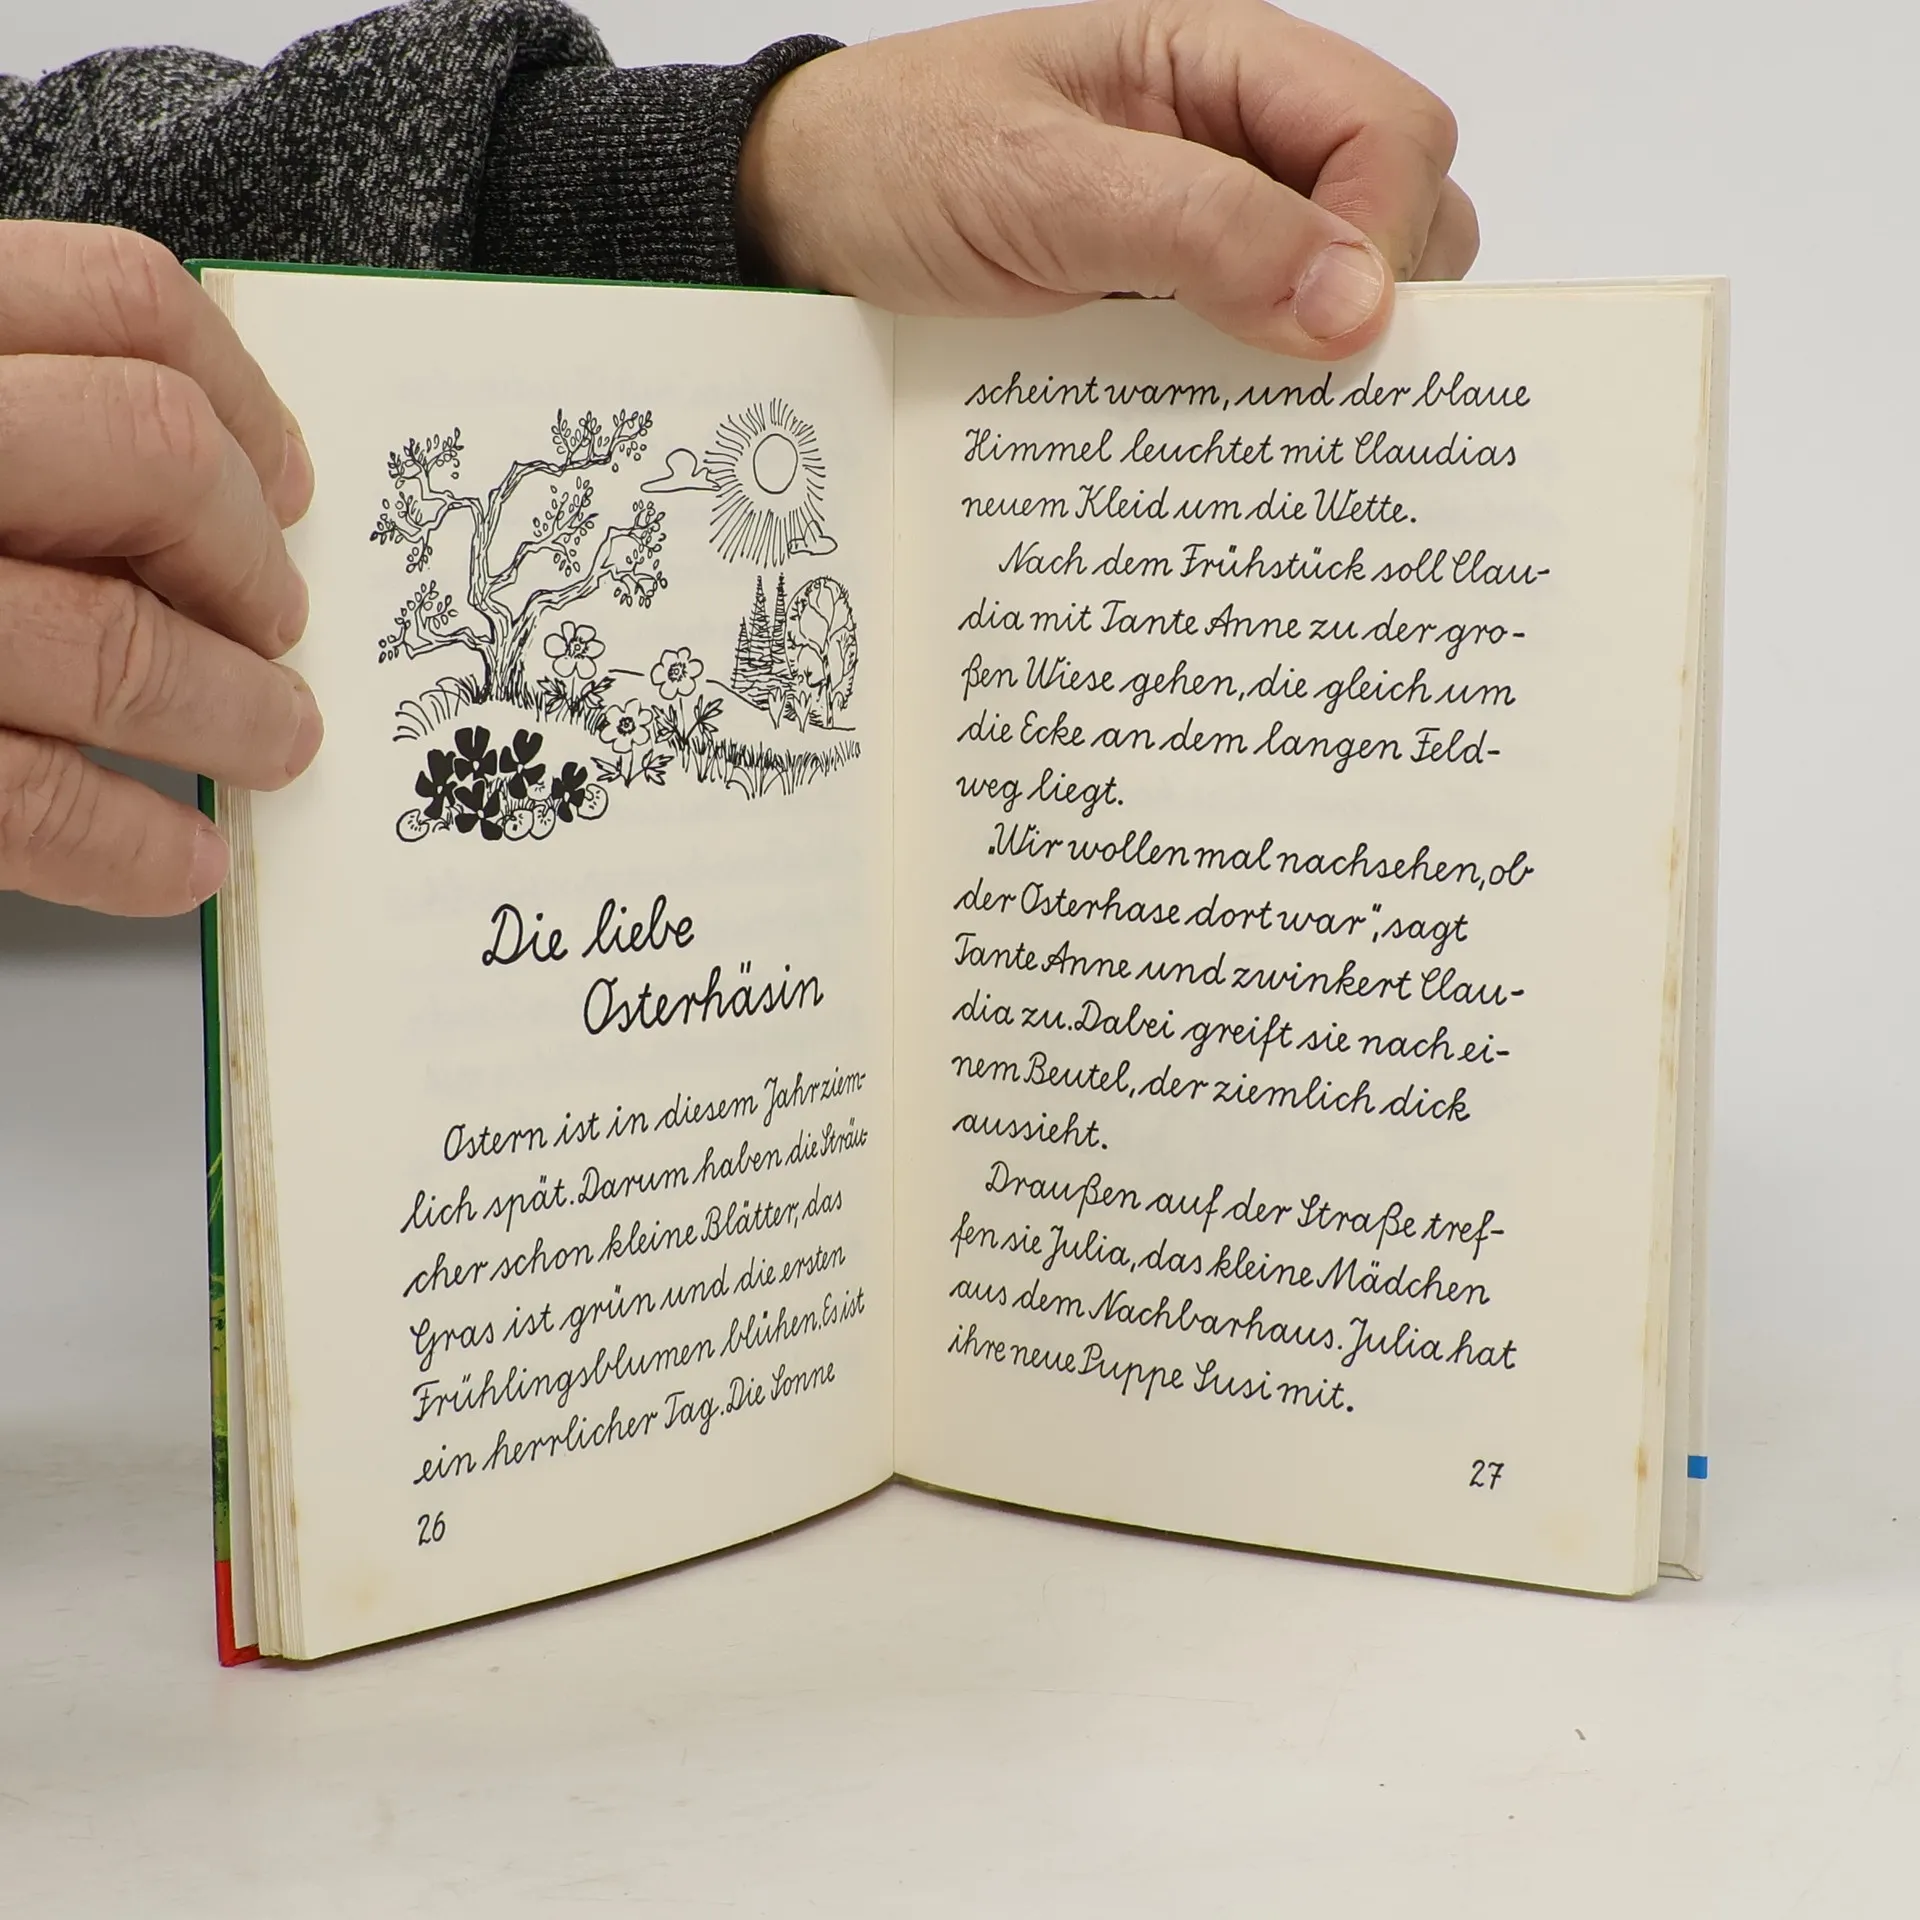 Die liebe
Osterhäsin
Ostern ist in diesem Jahr ziem-
lich spät. Darum haben die Sträu-
cher schon kleine Blätter, das
Gras ist grün und die ersten
Frühlingsblumen blühen. Es ist
ein herrlicher Tag. Die Sonne
26
scheint warm, und der blaue
Himmel leuchtet mit Claudias
neuem Kleid um die Wette.
Nach dem Frühstück soll Clau-
dia mit Tante Anne zu der gro-
ßen Wiese gehen, die gleich um
die Ecke an dem langen Feld-
weg liegt.
„Wir wollen mal nachsehen, ob
der Osterhase dort war“, sagt
Tante Anne und zwinkert Clau-
dia zu. Dabei greift sie nach ei-
nem Beutel, der ziemlich dick
aussieht.
Draußen auf der Straße tref-
fen sie Julia, das kleine Mädchen
aus dem Nachbarhaus. Julia hat
ihre neue Puppe Susi mit.
27